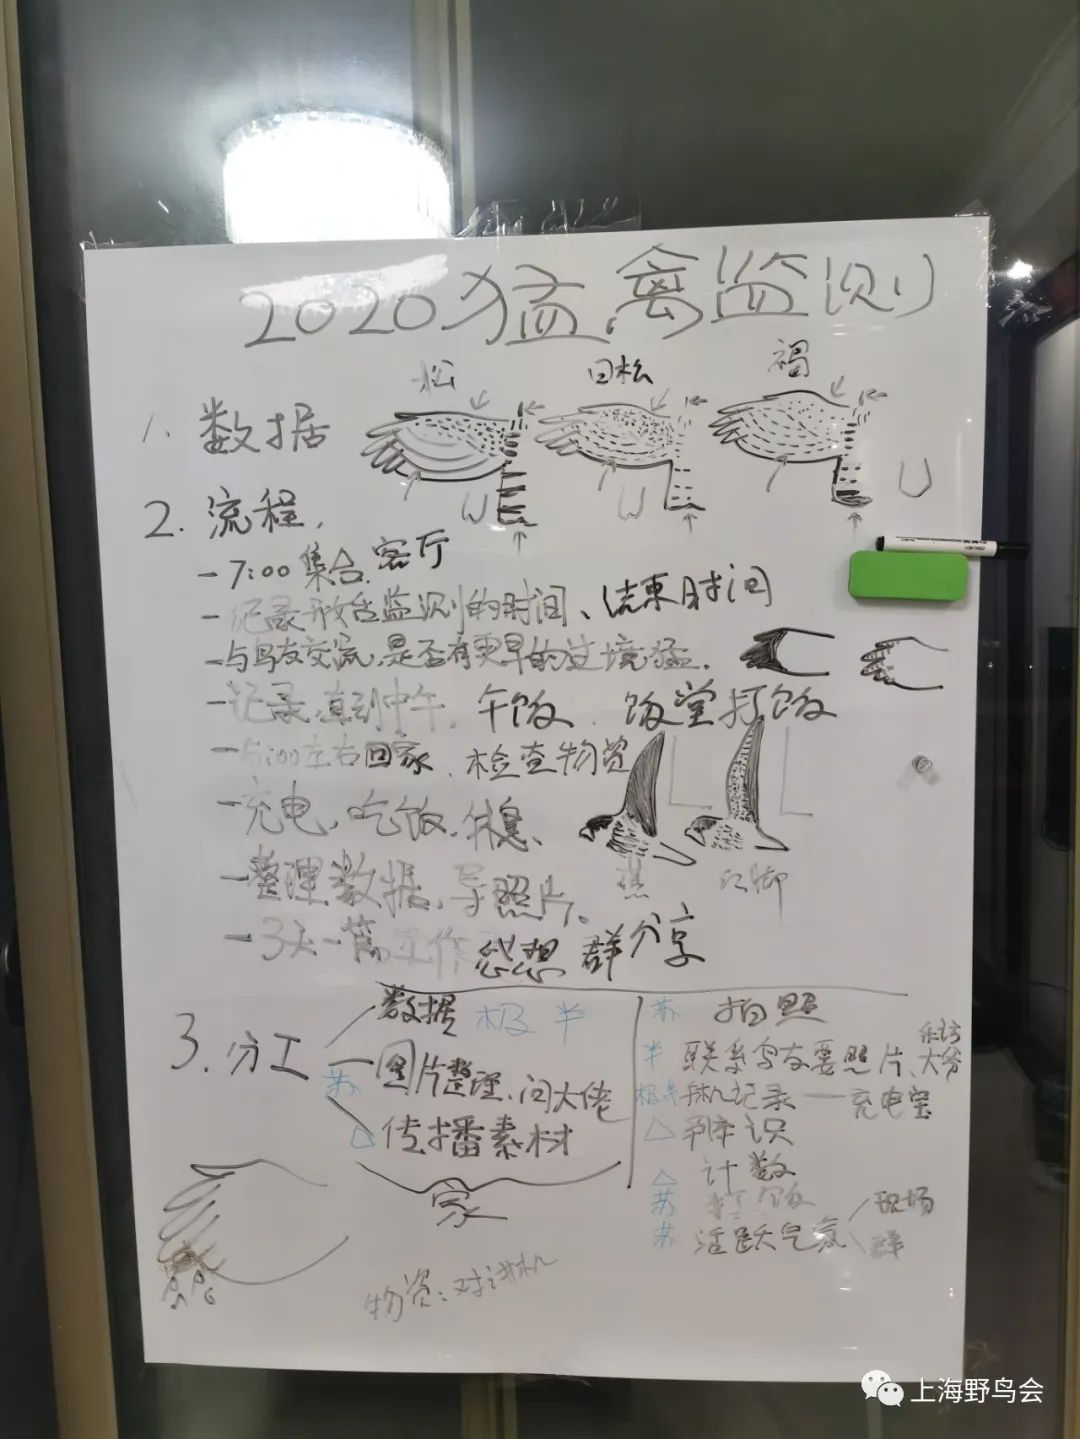 2020猛禽监测
松 日松 褐
1. 数据
2. 流程.
-7:00 集合. 客厅
-记录开始监测的时间、结束时间
-与鸟友交流,是否有更早的过境猛.
-记录,直到中午. 午饭. 饭堂打饭
-5:00左右回家、检查物资
-充电,吃饭,休息、
-整理数据,导照片、
燕 红脚
-3天一篇工作感想 群分享
3. 分工
数据 极 半
苏 图片整理,问大佬
△ 传播素材
家
苏 拍照
半 联系鸟友要照片、大爷
手机记录——充电宝
△ 识
△ 计数
苏 打饭
苏 活跃气氛 现场
群
物资:对讲机
上海野鸟会